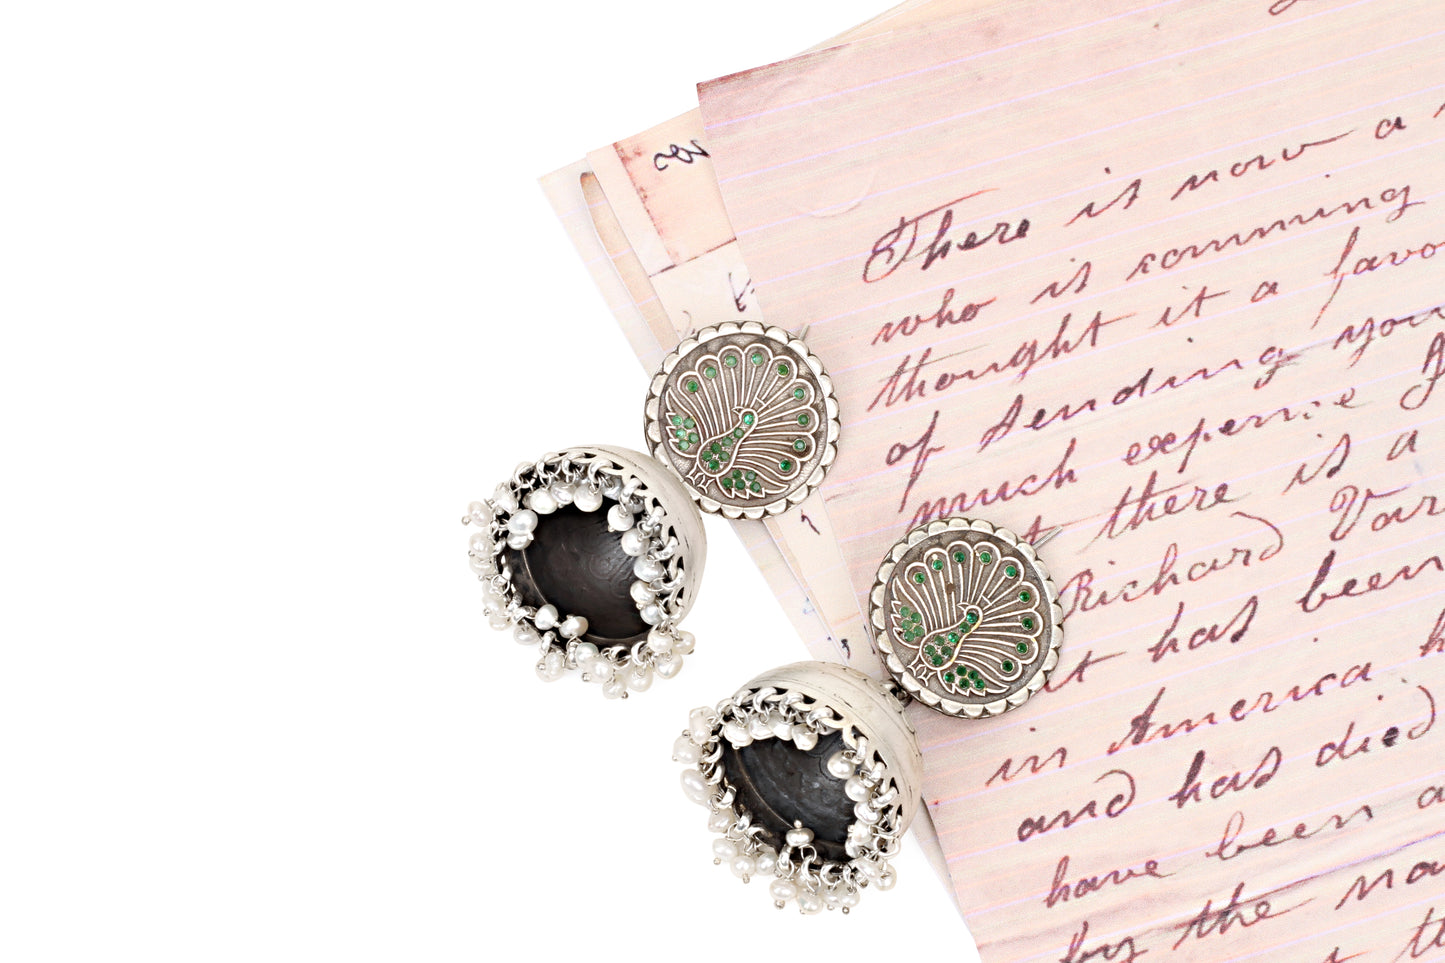 There is now a
who is comming
thought it a favo
of sending you
much expense
there is a
Richard Var
it has been
in America h
and has died
have been a
by the